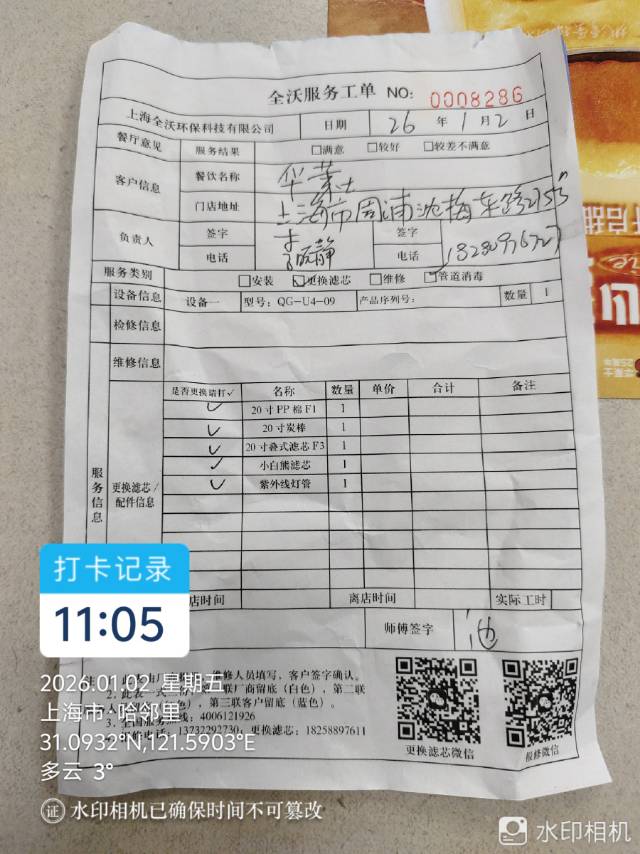 全沃服务工单 NO: 0008286
上海全沃环保科技有限公司 日期 26 年 1 月 2 日
餐厅意见 服务结果 □满意 □较好 □较差不满意
客户信息 餐饮名称 华莱士
门店地址 上海市周浦沈梅东路
负责人 签字 签字
电话 电话
服务类别 □安装 ☑更换滤芯 □维修 ☑管道消毒
设备信息 设备一 型号: QG-U4-09 产品序列号: 数量 1
检修信息
维修信息
服务信息 更换滤芯/配件信息
是否更换请打✓ 名称 数量 单价 合计 备注
✓ 20寸PP棉F1 1
✓ 20寸炭棒 1
✓ 20寸叠式滤芯F3 1
✓ 小白熊滤芯 1
✓ 紫外线灯管 1
店时间 离店时间 实际工时
师傅签字
维修人员填写，客户签字确认。
联厂商留底（白色），第二联
，第三联客户留底（蓝色）。
线: 4006121926
电话: 13732292730; 更换滤芯: 18258897611
更换滤芯微信 报修微信
打卡记录
11:05
2026.01.02 星期五
上海市·哈邻里
31.0932 N,121.5903°E
多云 3°
证 水印相机已确保时间不可篡改
水印相机